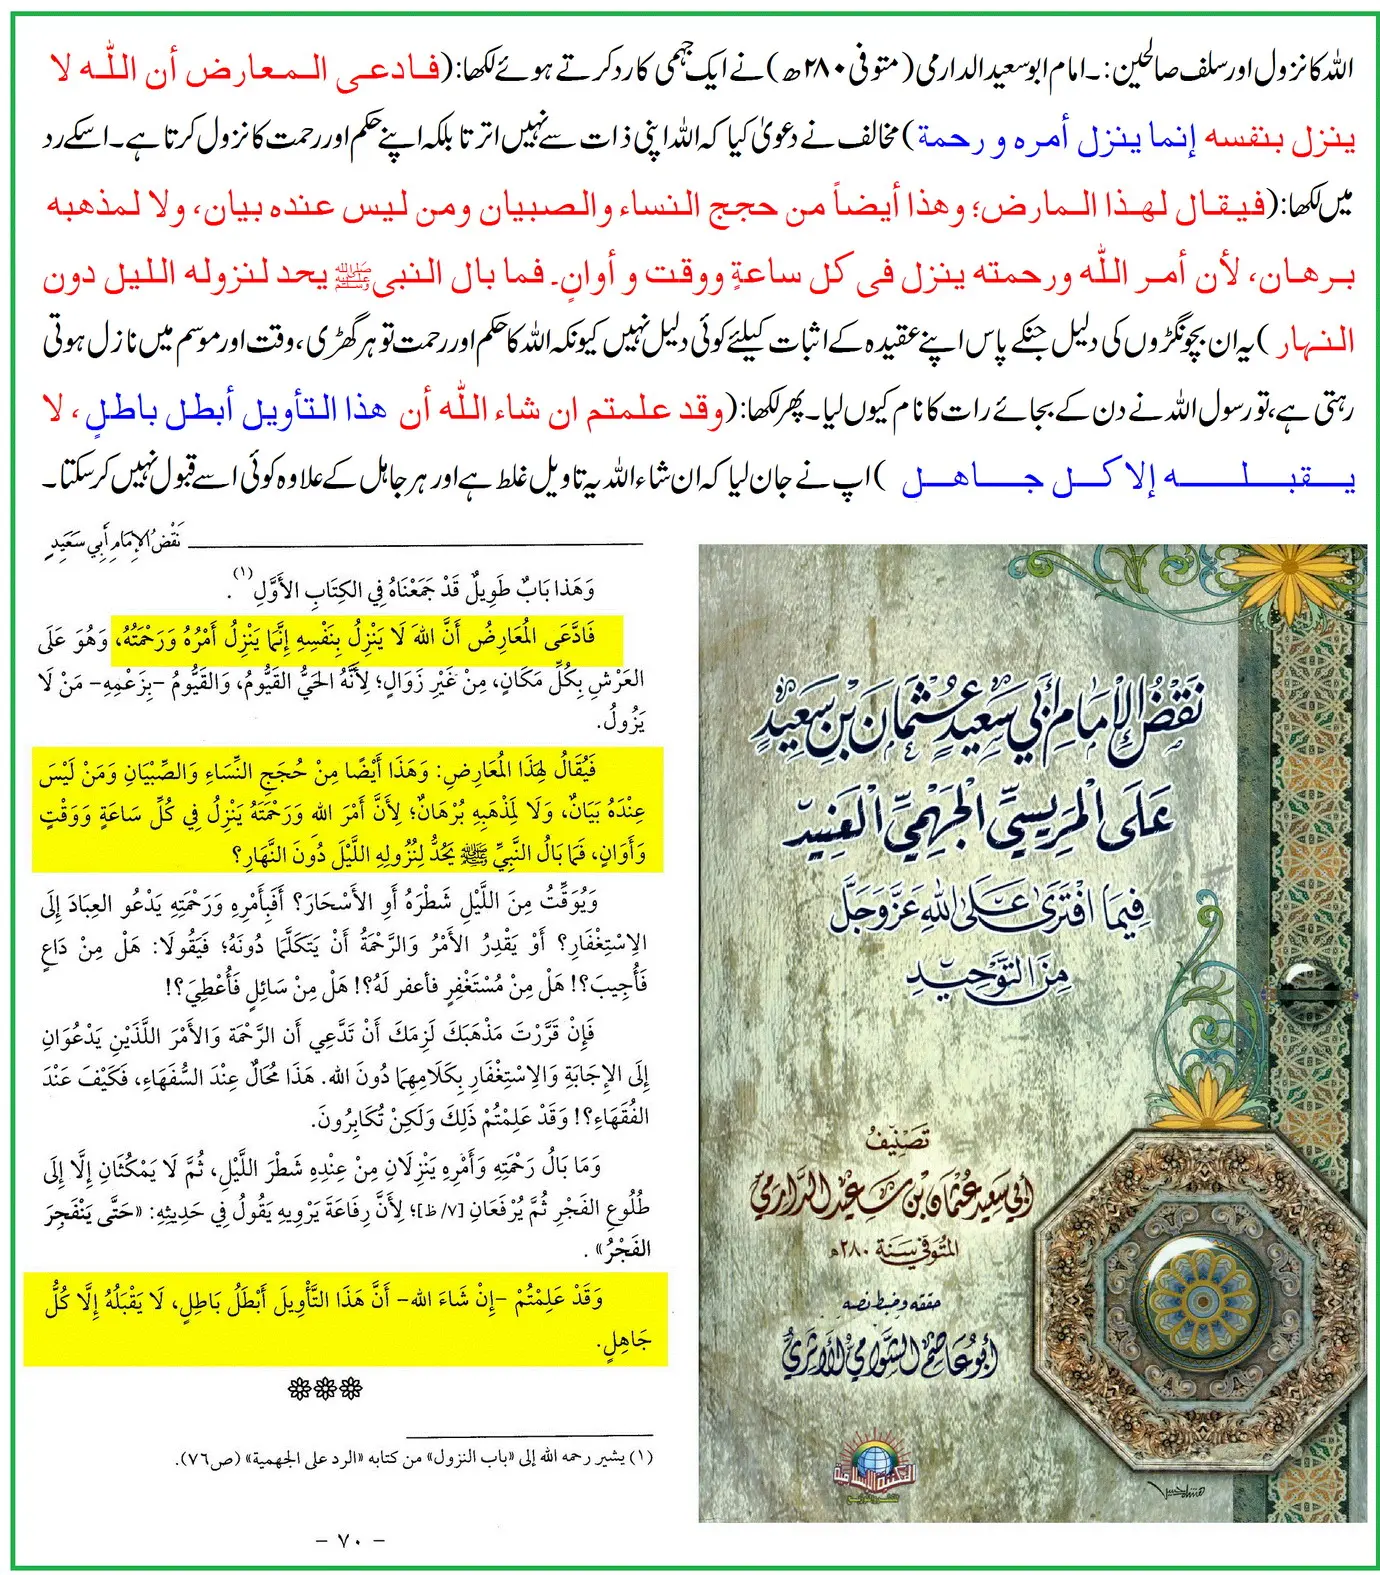 اللہ کا نزول اور سلف صالحین:۔ امام ابو سعید الدارمی (متوفی ۲۸۰ھ) نے ایک جہمی کا رد کرتے ہوئے لکھا: (فادعى المعارض أن اللّٰه لا
ينزل بنفسه إنما ينزل أمره و رحمة) مخالف نے دعویٰ کیا کہ اللہ اپنی ذات سے نہیں اترتا بلکہ اپنے حکم اور رحمت کا نزول کرتا ہے۔ اسکے رد
میں لکھا: (فيقال لهذا المارض؛ وهذا أيضاً من حجج النساء والصبيان ومن ليس عنده بيان، ولا لمذهبه
برهان، لأن أمر اللّٰه ورحمته ينزل فى كل ساعةٍ ووقت و أوانٍ۔ فما بال النبى ﷺ يحد لنزوله الليل دون
النهار) یہ ان بچونگڑوں کی دلیل جنکے پاس اپنے عقیدہ کے اثبات کیلئے کوئی دلیل نہیں کیونکہ اللہ کا حکم اور رحمت تو ہر گھڑی، وقت اور موسم میں نازل ہوتی
رہتی ہے، تو رسول اللہ نے دن کے بجائے رات کا نام کیوں لیا۔ پھر لکھا: (وقد علمتم ان شاء اللّٰه أن هذا التأويل أبطل باطلٍ، لا
يقبله إلا كل جاهل) اپ نے جان لیا کہ ان شاء اللہ یہ تاویل غلط ہے اور ہر جاہل کے علاوہ کوئی اسے قبول نہیں کرسکتا۔
نَقْضُ الإِمَامِ أَبِي سَعِيدٍ
وَهَذا بَابٌ طَوِيلٌ قَدْ جَمَعْنَاهُ فِي الكِتَابِ الأَوَّلِ (١).
فَادَّعَى المُعَارِضُ أَنَّ اللهَ لَا يَنْزِلُ بِنَفْسِهِ إِنَّمَا يَنْزِلُ أَمْرُهُ وَرَحْمَتُهُ، وَهُوَ عَلَى
العَرْشِ بِكُلِّ مَكَانٍ، مِنْ غَيْرِ زَوَالٍ؛ لِأَنَّهُ الحَيُّ القَيُّومُ، وَالقَيُّومُ -بِزَعْمِهِ- مَنْ لَا
يَزُولُ.
فَيُقَالُ لِهَذَا المُعَارِضِ: وَهَذَا أَيْضًا مِنْ حُجَجِ النِّسَاءِ وَالصِّبْيَانِ وَمَنْ لَيْسَ
عِنْدَهُ بَيَانٌ، وَلَا لِمَذْهَبِهِ بُرْهَانٌ؛ لِأَنَّ أَمْرَ الله وَرَحْمَتَهُ يَنْزِلُ فِي كُلِّ سَاعَةٍ وَوَقْتٍ
وَأَوَانٍ، فَمَا بَالُ النَّبِيِّ ﷺ يَحُدُّ لِنُزُولِهِ اللَّيْلَ دُونَ النَّهَارِ؟
وَيُوَقِّتُ مِنَ اللَّيْلِ شَطْرَهُ أَوِ الأَسْحَارَ؟ أَفَبِأَمْرِهِ وَرَحْمَتِهِ يَدْعُو العِبَادَ إِلَى
الاِسْتِغْفَارِ؟ أَوْ يَقْدِرُ الأَمْرُ وَالرَّحْمَةُ أَنْ يَتَكَلَّمَا دُونَهُ؛ فَيَقُولَا: هَلْ مِنْ دَاعٍ
فَأُجِيبَ؟! هَلْ مِنْ مُسْتَغْفِرٍ فأغفر لَهُ؟! هَلْ مِنْ سَائِلٍ فَأُعْطِيَ؟!
فَإِنْ قَرَّرْتَ مَذْهَبَكَ لَزِمَكَ أَنْ تَدَّعِي أَن الرَّحْمَة وَالأَمْرَ اللَّذَيْنِ يَدْعُوَانِ
إِلَى الإِجَابَةِ وَالاِسْتِغْفَارِ بِكَلَامِهِمَا دُونَ الله. هَذَا مُحَالٌ عِنْدَ السُّفَهَاءِ، فَكَيْفَ عَنْدَ
الفُقَهَاءِ؟! وَقَدْ عَلِمْتُمْ ذَلِكَ وَلَكِنْ تُكَابِرُونَ.
وَمَا بَالُ رَحْمَتِهِ وَأَمْرِهِ يَنْزِلَانِ مِنْ عِنْدِهِ شَطْرَ اللَّيْلِ، ثُمَّ لَا يَمْكُثَانِ إِلَّا إِلَى
طُلُوعِ الفَجْرِ ثُمَّ يُرْفَعَانِ [٧/ظ]؛ لِأَنَّ رِفَاعَةَ يَرْوِيهِ يَقُولُ فِي حَدِيثِهِ: «حَتَّى يَنْفَجِرَ
الفَجْرُ» .
وَقَدْ عَلِمْتُمْ -إِنْ شَاءَ الله- أَنَّ هَذَا التَّأْوِيلَ أَبْطَلُ بَاطِلٍ، لَا يَقْبَلُهُ إِلَّا كُلُّ
جَاهِلٍ.
(١) يشير رحمه الله إلى «باب النزول» من كتابه «الرد على الجهمية» (ص٧٦).
- ٧٠ -
نَقْضُ الإِمَامِ أَبِي سَعِيدٍ عُثْمَانَ بْنِ سَعِيدٍ
عَلَى المَرِيسِيِّ الجَهْمِيِّ العَنِيدِ
فِيمَا افْتَرَى عَلَى اللهِ عَزَّ وَجَلَّ
مِنَ التَّوْحِيدِ
تَصْنِيفُ
أَبِي سَعِيدٍ عُثْمَانَ بْنِ سَعِيدٍ الدَّارِمِيِّ
المُتَوَفَّى سَنَةَ ٢٨٠هـ
حققه وضبط نصه
أَبُو عَاصِمٍ الشَّوَامِيُّ الأَثَرِيُّ
المكتبة الإسلامية